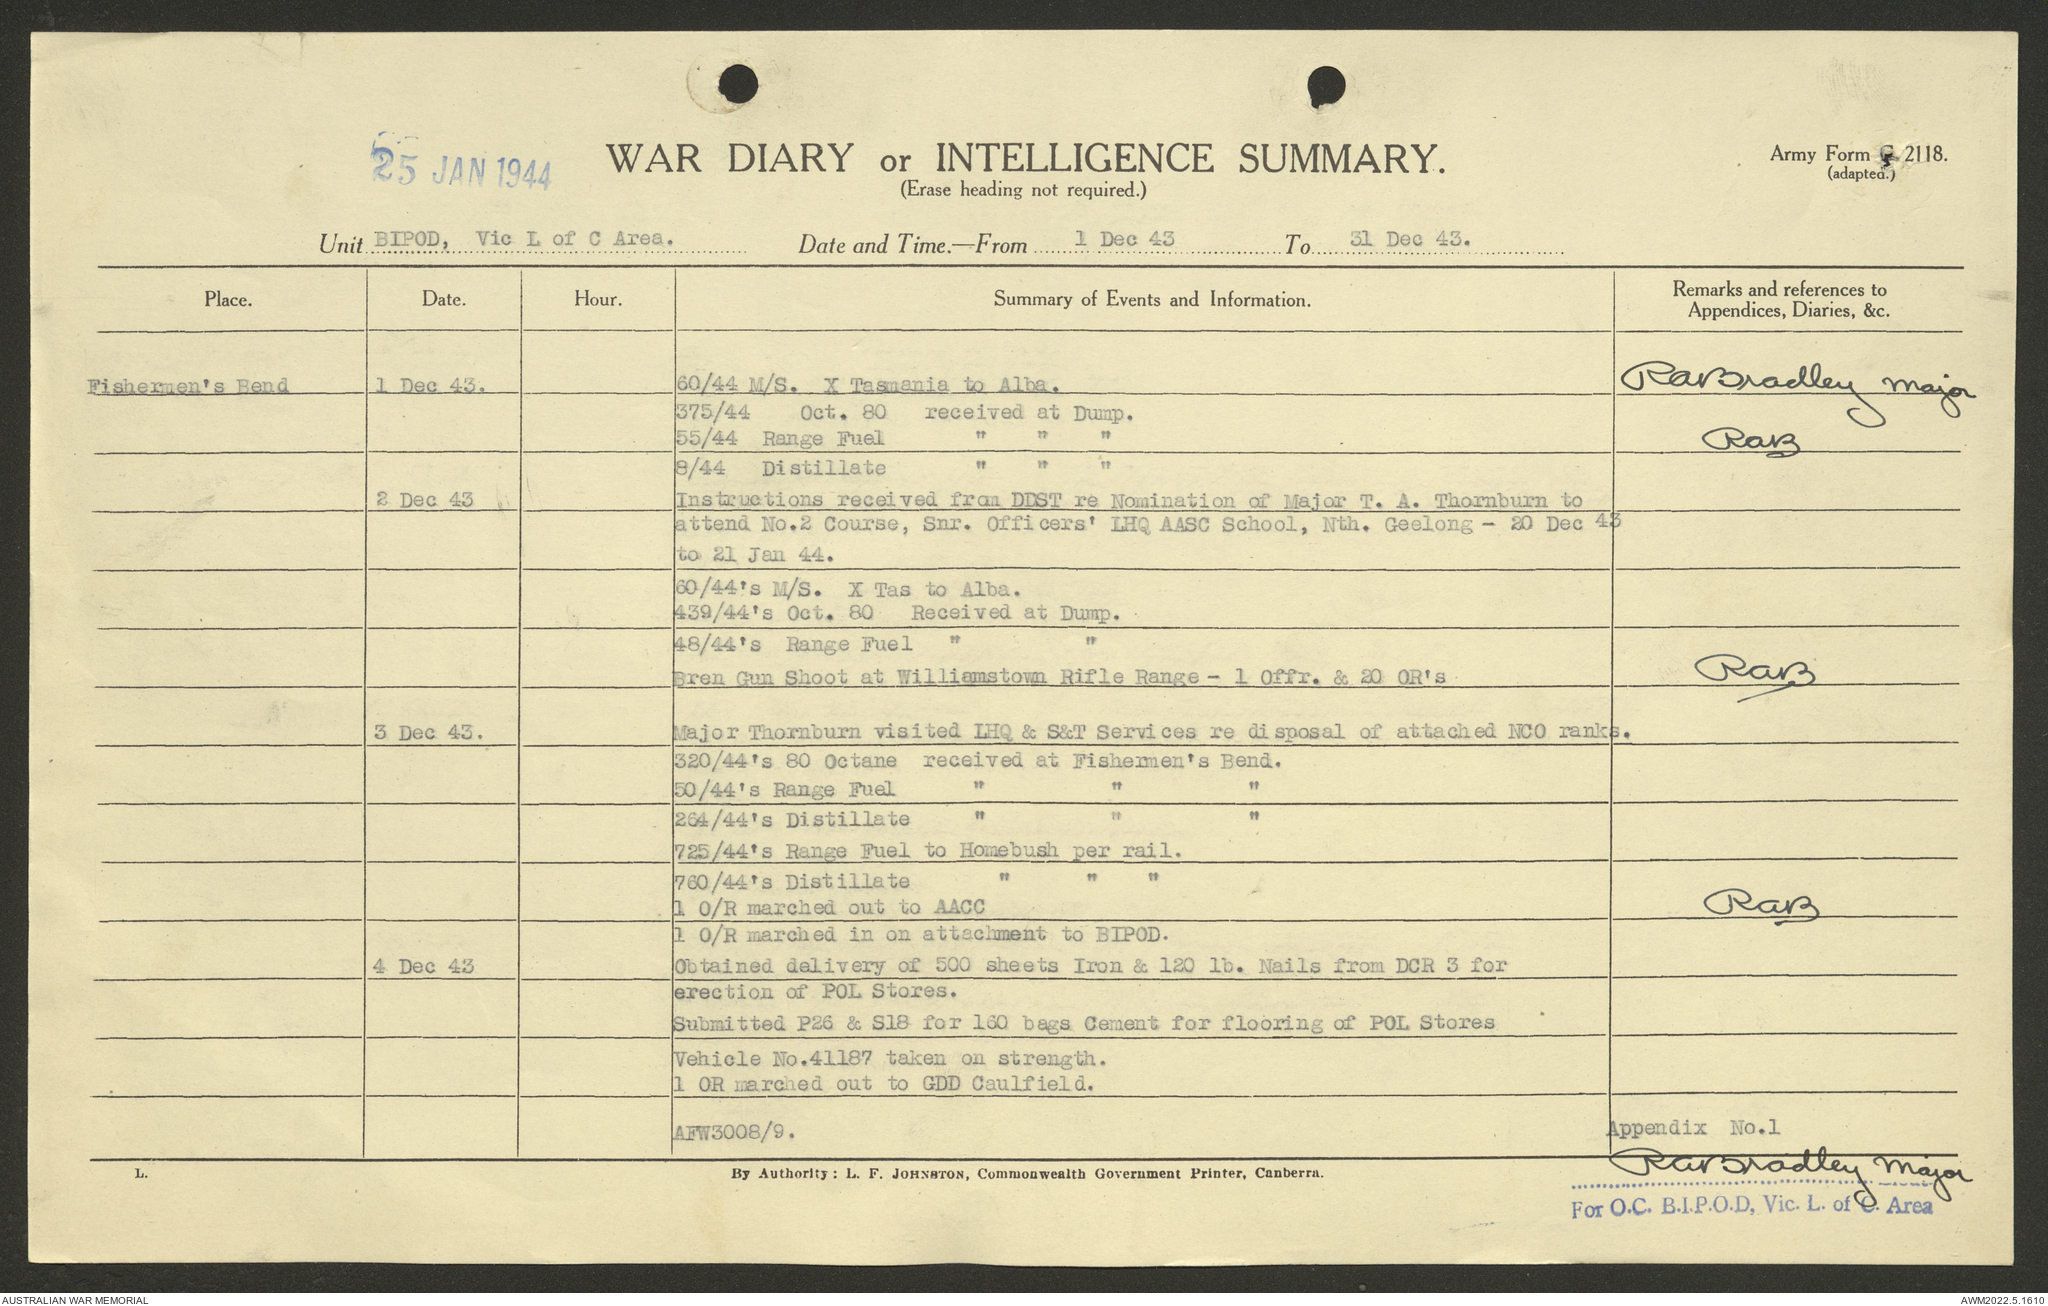 25 JAN 1944
WAR DIARY or INTELLIGENCE SUMMARY.
(Erase heading not required.)
Army Form 2118.
(adapted.)
Unit BIPOD, Vic L of C Area. Date and Time.—From 1 Dec 43 To 31 Dec 43.
Place. Date. Hour. Summary of Events and Information. Remarks and references to Appendices, Diaries, &c.
Fishermen's Bend 1 Dec 43. 60/44 M/S. X Tasmania to Alba. RABradley Major
375/44 Oct. 80 received at Dump.
55/44 Range Fuel " " " RAB
8/44 Distillate " " "
2 Dec 43 Instructions received from DDST re Nomination of Major T. A. Thornburn to
attend No.2 Course, Snr. Officers' LHQ AASC School, Nth. Geelong - 20 Dec 43
to 21 Jan 44.
60/44's M/S. X Tas to Alba.
439/44's Oct. 80 Received at Dump.
48/44's Range Fuel " "
Bren Gun Shoot at Williamstown Rifle Range - 1 Offr. & 20 OR's RAB
3 Dec 43. Major Thornburn visited LHQ & S&T Services re disposal of attached NCO ranks.
320/44's 80 Octane received at Fishermen's Bend.
50/44's Range Fuel " " "
264/44's Distillate " " "
725/44's Range Fuel to Homebush per rail.
760/44's Distillate " " "
1 O/R marched out to AACC RAB
1 O/R marched in on attachment to BIPOD.
4 Dec 43 Obtained delivery of 500 sheets Iron & 120 lb. Nails from DCR 3 for
erection of POL Stores.
Submitted P26 & S18 for 160 bags Cement for flooring of POL Stores
Vehicle No.41187 taken on strength.
1 OR marched out to GDD Caulfield.
AFW3008/9. Appendix No.1
L. By Authority: L. F. JOHNSTON, Commonwealth Government Printer, Canberra.
RABradley Major
For O.C. B.I.P.O.D, Vic. L. of C. Area
AUSTRALIAN WAR MEMORIAL
AWM2022.5.1610